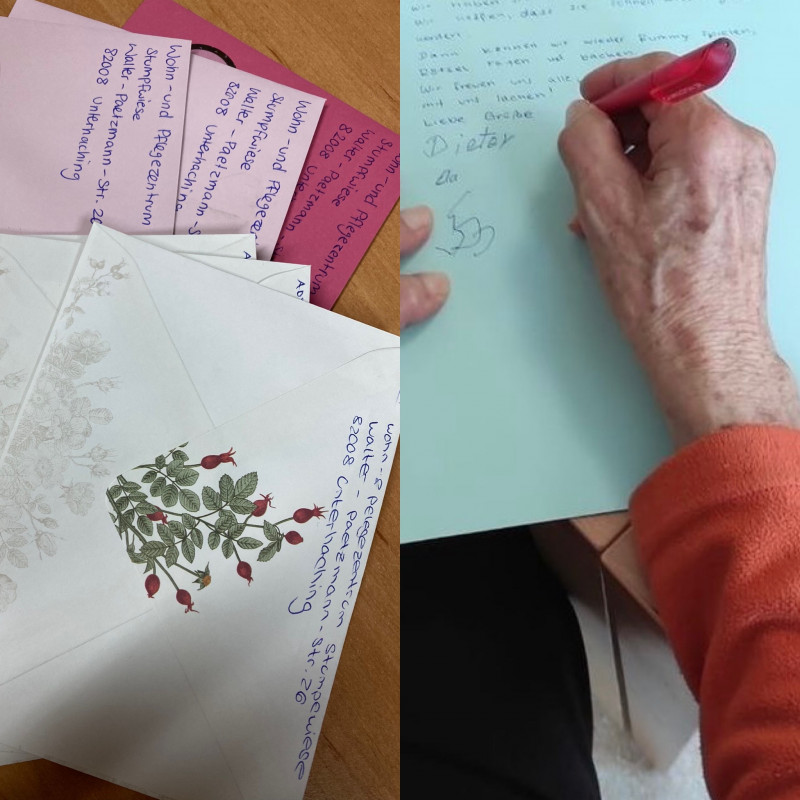 Wohn- und Pflegezentrum
Stumpfwiese
Walter-Paetzmann-Str. 26
82008 Unterhaching
Wohn- und Pflegezen
Stumpfwiese
Walter-Paetzmann-S
82008 Unterhaching
ohn-und Pflegezentrum
Stumpfwiese
Walter-Paetzmann
82008 Unter
Ab
Wohn-& Pflegezentrum Stumpfwiese
Walter-Paetzmann-Str. 26
82008 Unterhaching
wir hoffen, dass Sie schnell
werden
Dann können wir wieder Rummy spielen,
Rätsel raten und backen
Wir freuen uns alle,
mit uns lachen!
Liebe Grüße
Dieter